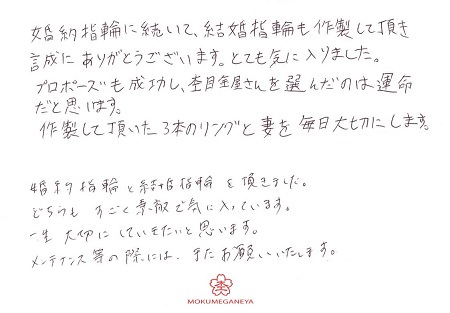 婚約指輪に続いて、結婚指輪も作製して頂き
誠に ありがとうございます。とても気に入りました。
プロポーズも成功し、杢目金屋さんを選んだのは運命
だと思います。
作製して頂いた3本のリングと妻を毎日大切にします。
婚約指輪と結婚指輪を頂きました。
どちらも すごく素敵で気に入っています。
一生大切にしていきたいと思います。
メンテナンス等の際には、またお願いいたします。
杢
MOKUMEGANEYA